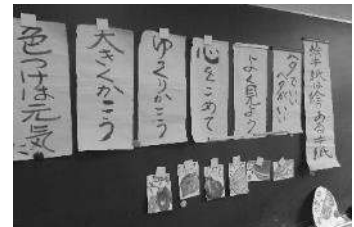 絵手紙は絵のある手紙
ヘタでいい
ヘタがいい
よく見よう
心をこめて
ゆっくりかこう
大きくかこう
色つけは元気